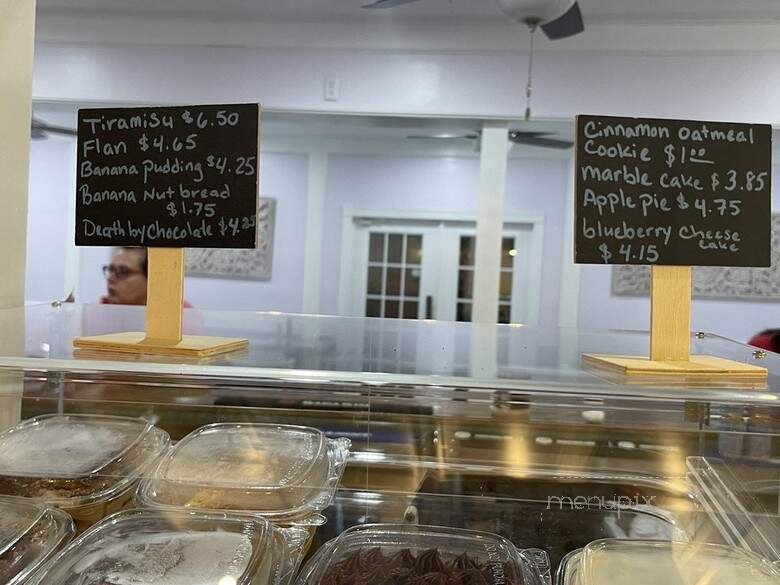 Tiramisu $6.50
Flan $4.65
Banana Pudding $4.25
Banana Nut bread
$1.75
Death by Chocolate $4.25
Cinnamon oatmeal
Cookie $1.00
marble cake $3.85
Apple pie $4.75
blueberry cheese
cake
$4.15
menupix